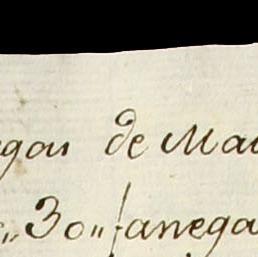 gou de Mac
30 fanega